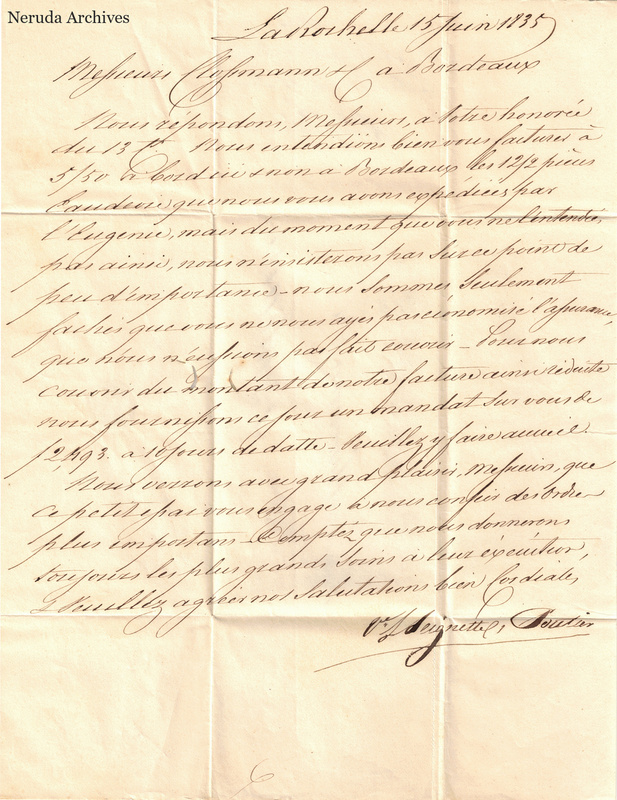 Neruda Archives
La Rochelle 15 Juin 1835
Messieurs Clossmann & C a Bordeaux
Nous répondons, Messieurs, a votre honorée
du 13 Ct. Nous entendions bien vous facturer à
5/50 à bord ici & non a Bordeaux les 12/2 pièces
Eaudevie que nous vous avons expédiées par
l'Eugenie, mais du moment que vous ne l'entendez
pas ainsi, nous n'insisterons pas sur ce point de
peu d'importance - nous sommes seulement
fachés que vous ne nous ayés pas économisé l'assurance,
que nous n'eussions pas fait couvrir - Pour nous
couvrir du montant de notre facture ainsi réduite
nous fournissons ce jour un mandat sur vous de
f 2,493. à 10 jours de datte - Veuillez y faire accueil.
Nous verrons avec grand plaisir, Messieurs, que
ce petit vous engage à nous confier des ordres
plus importans - Comptéz que nous donnerons
toujours les plus grands soins à leur éxécution,
& Veuilléz agréer nos Salutations bien Cordiales
Ve. Seignette,